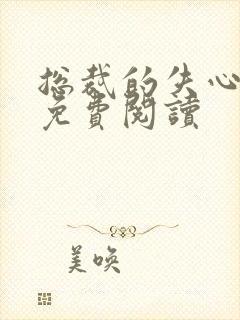 总裁的失心
免費閱讀
美唤